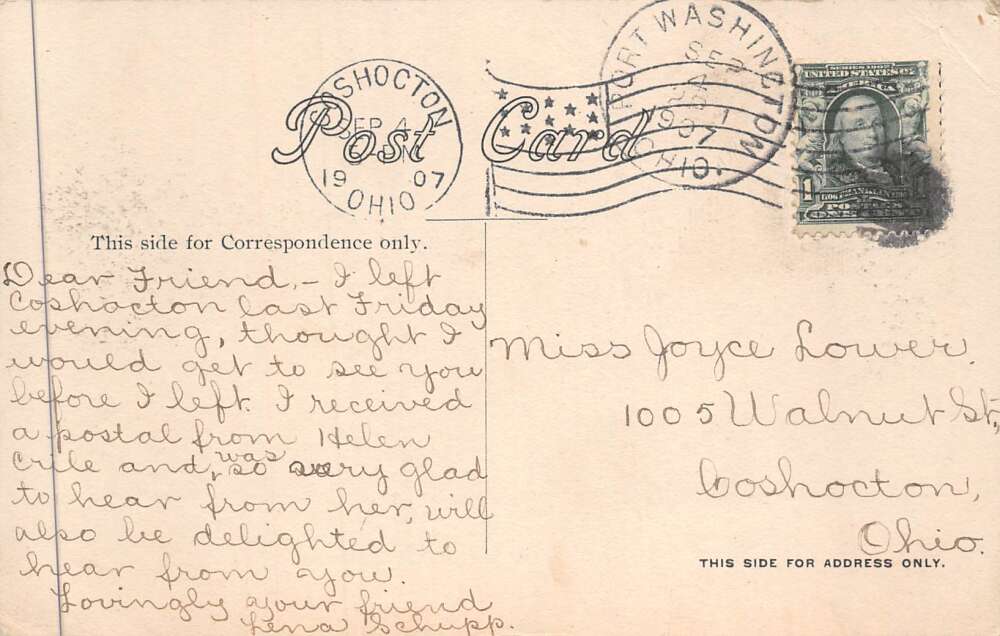 COSHOCTON
SEP 4
1907
OHIO
PORT WASHINGTON
SEP
1907
OHIO.
Post Card
SERIES 1902
UNITED STATES OF
AMERICA
1
This side for Correspondence only.
Dear Friend,- I left
Coshocton last Friday
evening, thought I
would get to see you
before I left. I received
a postal from Helen
Crile and, was so very glad
to hear from her, will
also be delighted to
hear from you.
Lovingly your friend
Lena Schupp.
Miss Joyce Lower.
1005 Walnut St,
Coshocton,
Ohio.
THIS SIDE FOR ADDRESS ONLY.